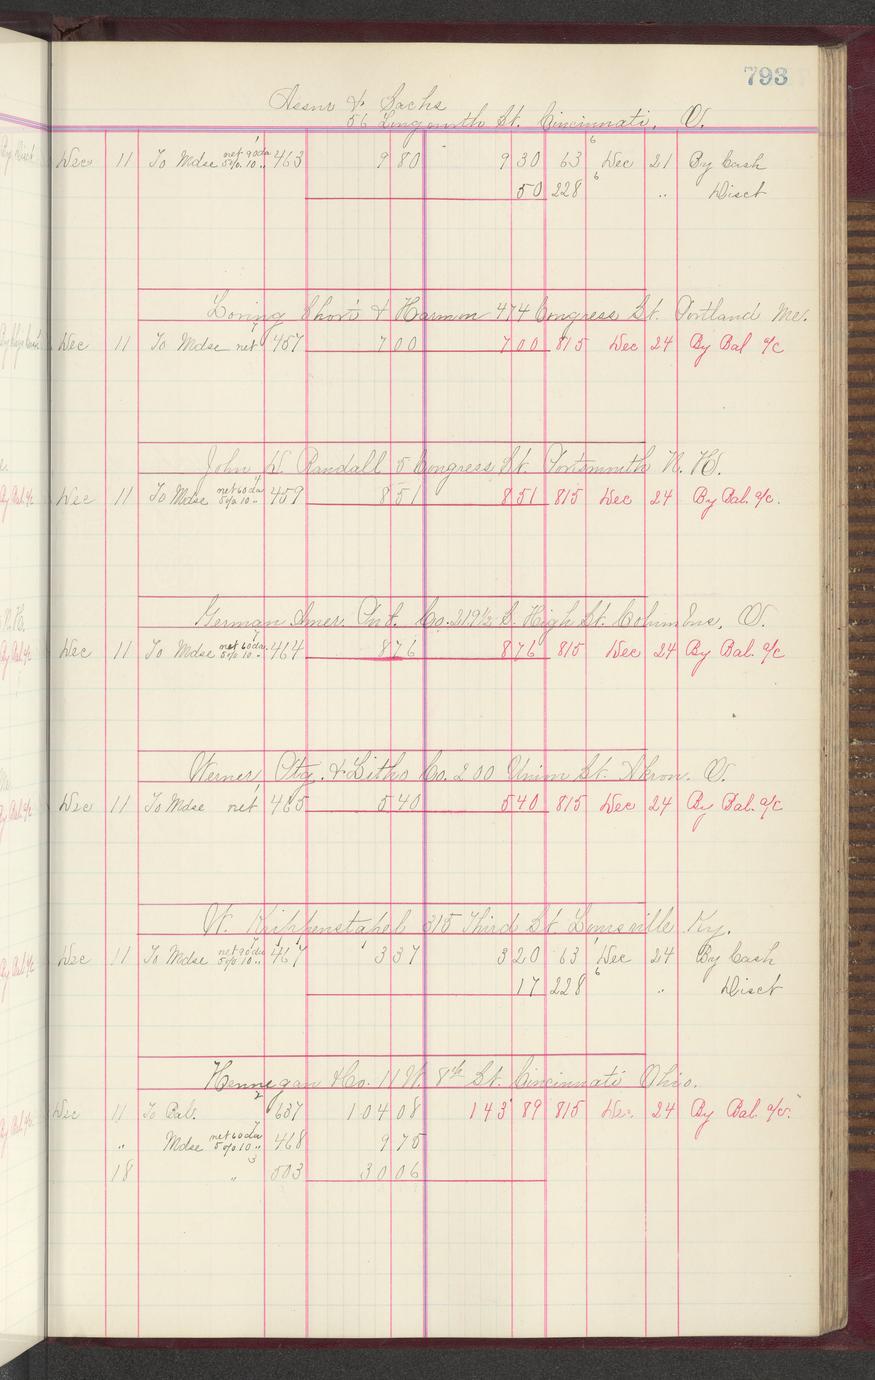 793
& Sachs
56 Longworth St. Cincinnati, O.
Dec 11 To Mdse net 90da 5% 10 " 463 9 80 9 30 63 Dec 21 By Cash
50 228 " Disct
Loring Short & Harmon 474 Congress St. Portland Me.
Dec 11 To Mdse net 457 7 00 7 00 815 Dec 24 By Bal a/c
John W. Randall 5 Congress St. Portsmouth N. H.
Dec 11 To Mdse net 60 da 5% 10 " 459 8 51 8 51 815 Dec 24 By Bal. a/c.
German Amer. Co. 219½ S. High St. Columbus, O.
Dec 11 To Mdse net 60da. 5% 10 " 464 8 76 8 76 815 Dec 24 By Bal. a/c
Werner Ptg. & Litho Co. 200 Union St. Akron. O.
Dec 11 To Mdse net 465 5 40 5 40 815 Dec 24 By Bal. a/c
W. Krippenstapel 315 Third St Louisville Ky.
Dec 11 To Mdse net 90da 5% 10 " 467 3 37 3 20 63 Dec 24 By Cash
17 228 " Disct
Hennegan & Co. 11 W. 8th St. Cincinnati Ohio.
Dec 11 To Bal. 637 104 08 143 89 815 Dec 24 By Bal a/c
" Mdse net 60da 5% 10 " 468 9 75
18 " 503 30 06